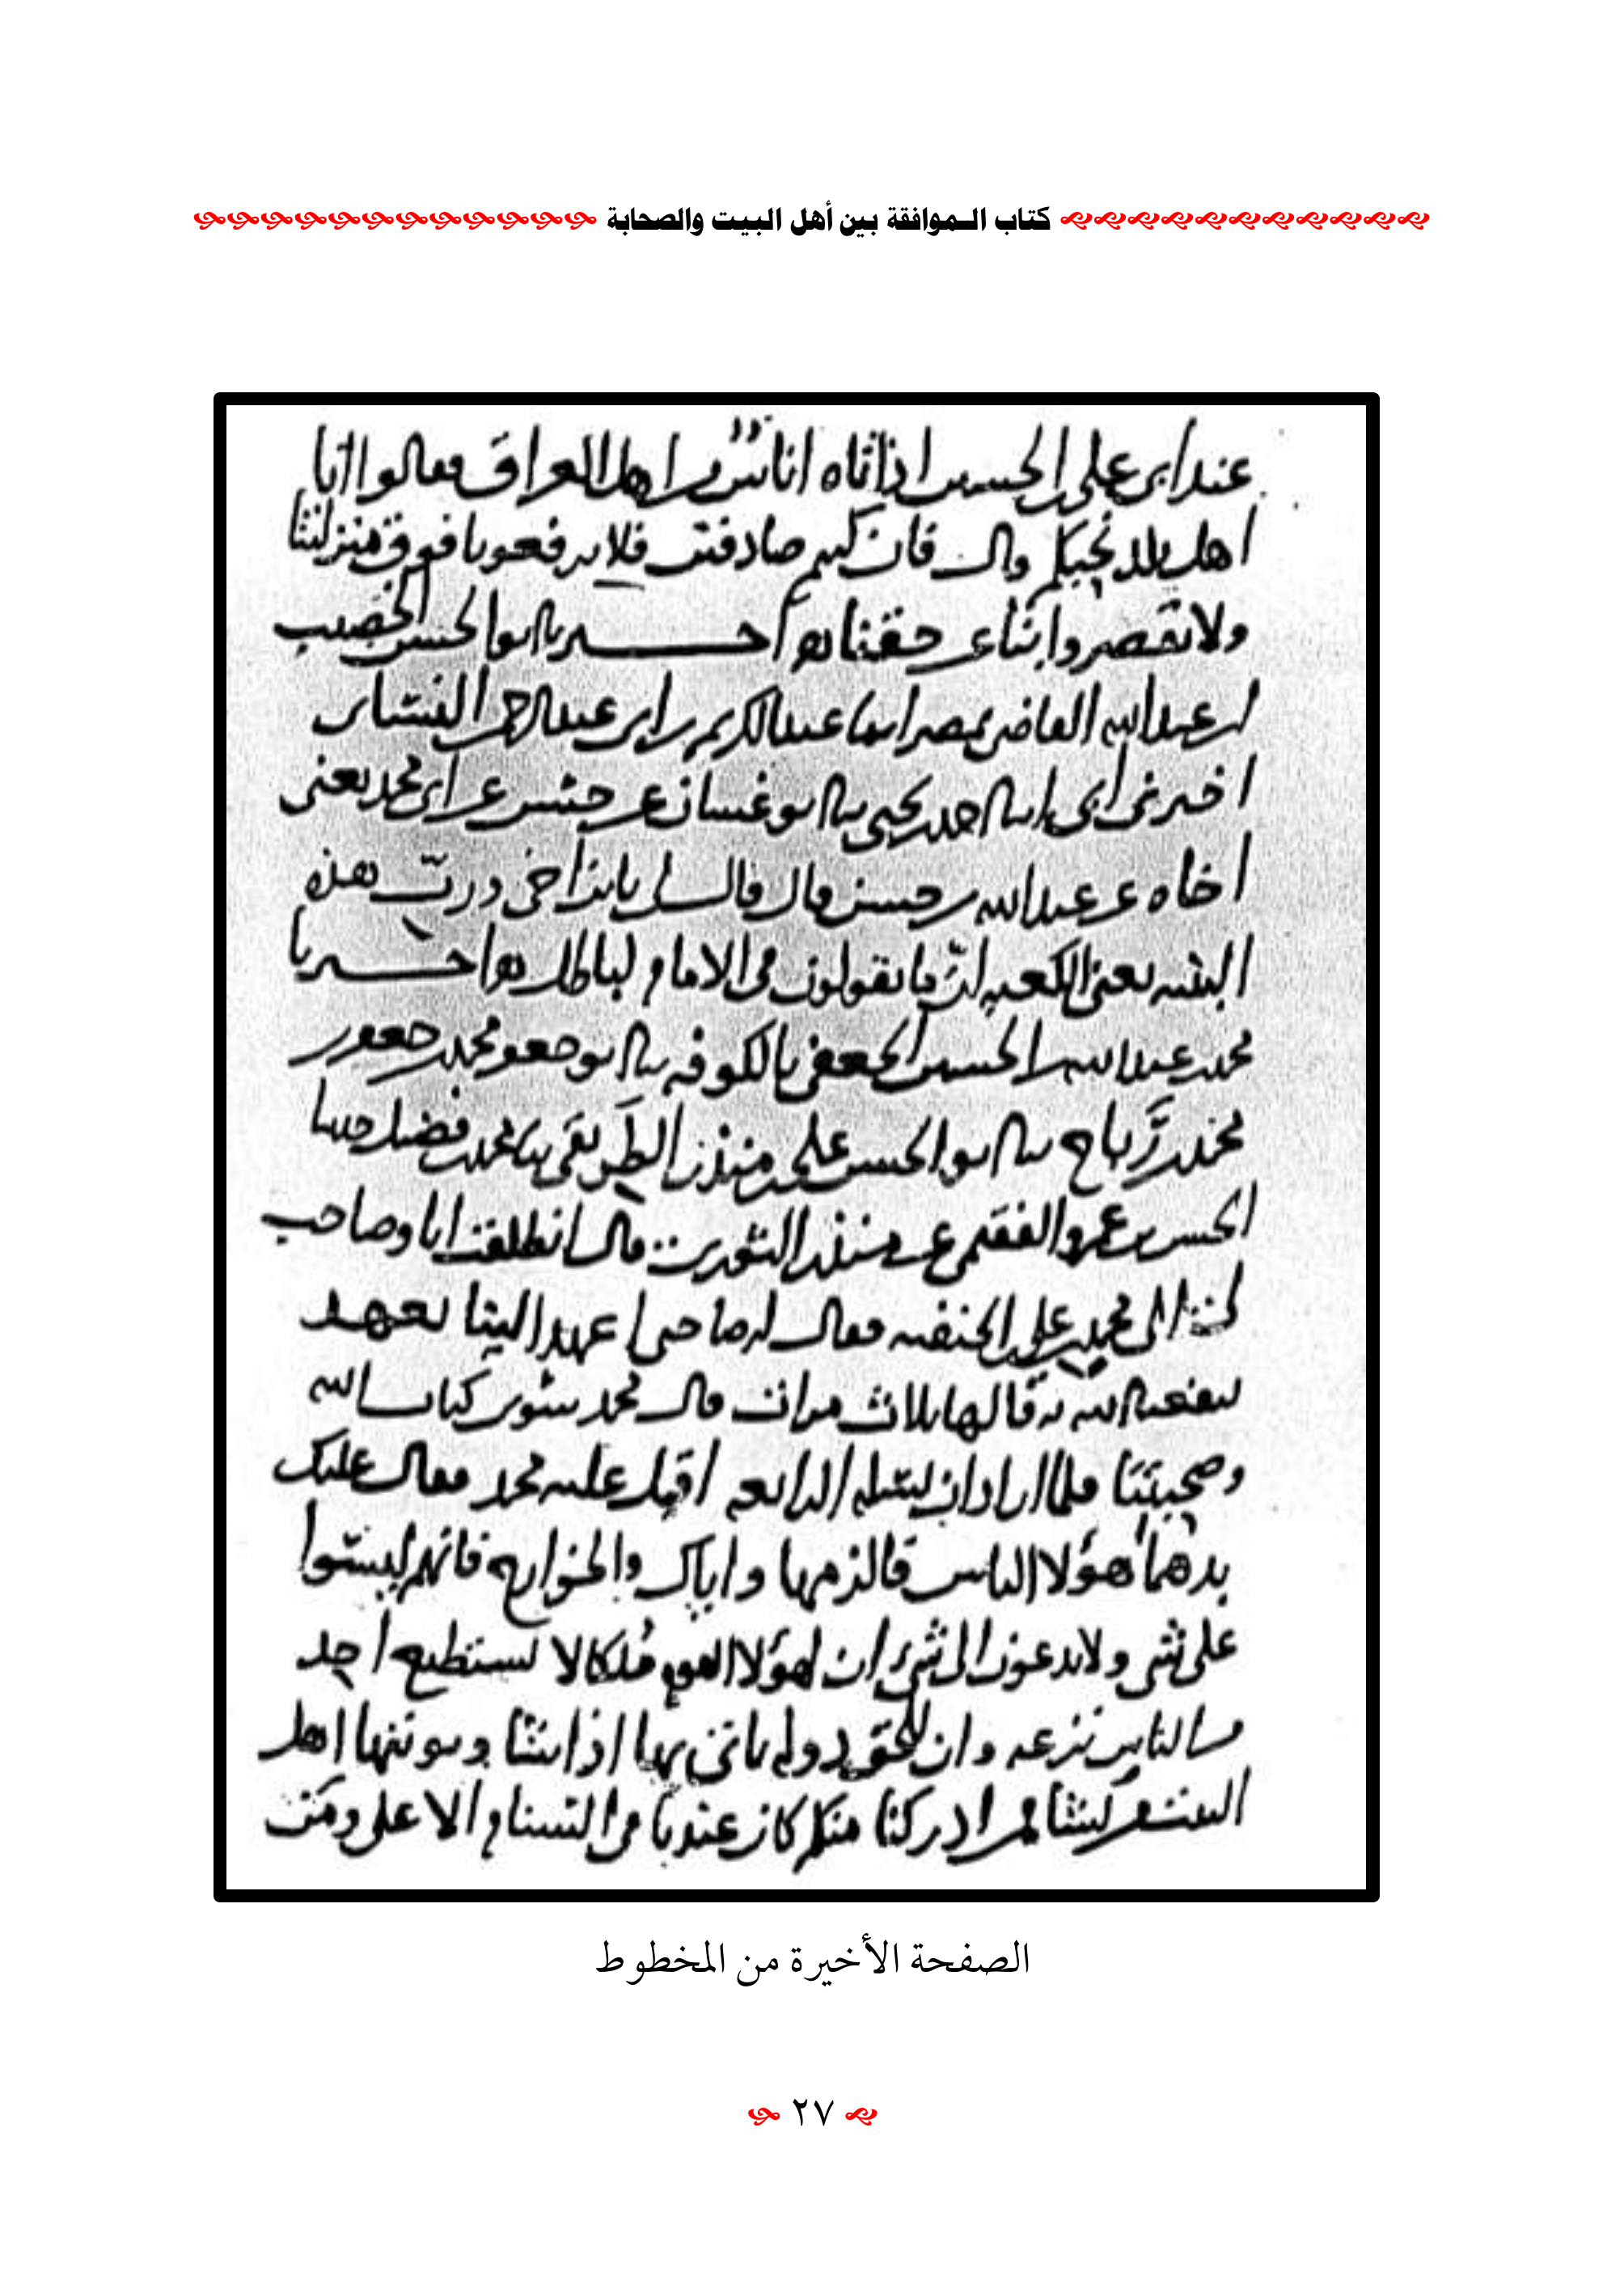 كتاب الـموافقة بين أهل البيت والصحابة
عند ابى على الحسين اذ اتاه اناس من اهل العراق فقالوا اتانا
اهل بلد نحبكم قال فان كنتم صادقين فلا ترفعونا فوق منزلتنا
ولا تقصروا بنا عن حقنا اخبرنا ابو الحسن الخصيب
بن عبد الله القاضى بمصر عبد الكريم بن ابى عبد الرحمن النسائى
اخبرنى ابى احمد بن يحيى ابو غسان عن حسن عن ابى محمد يعنى
اخاه عن عبد الله بن حسن قال قال لى يابن اخى وربّ هذه
البنية يعنى الكعبة انّ ما يقولون فى الامام لباطل اخبرنا
محمد بن عبد الله بن الحسين الجعفى بالكوفه ابو جعفر محمد بن جعفر بن
محمد بن رباح ابو الحسن على بن منذر الطريقى محمد بن فضيل
الحسن بن عمرو الفقيمى عن منذر الثورى قال انطلقت انا وصاحب
لى الى محمد بن على الحنفيه فقال له صاحبى اعهد الينا بعهد
ينفعنا الله به قالها ثلاث مرات قال محمد كتاب الله
فلما اراد ان يسله الرابعه اقبل عليه محمد فقال عليك
بدهماء هؤلا الناس فالزمها واياك والخوارج فانهم ليسوا
على شى ولا يدعون الى شى ان لهؤلا القوم ملكا لا يستطيع احد
من الناس نزعه وان للحق دوله ياتى بها اذا اهل
البيت ادركنا منكم كان عندنا فى السنام الاعلى ومن
الصفحة الأخيرة من المخطوط
٢٧